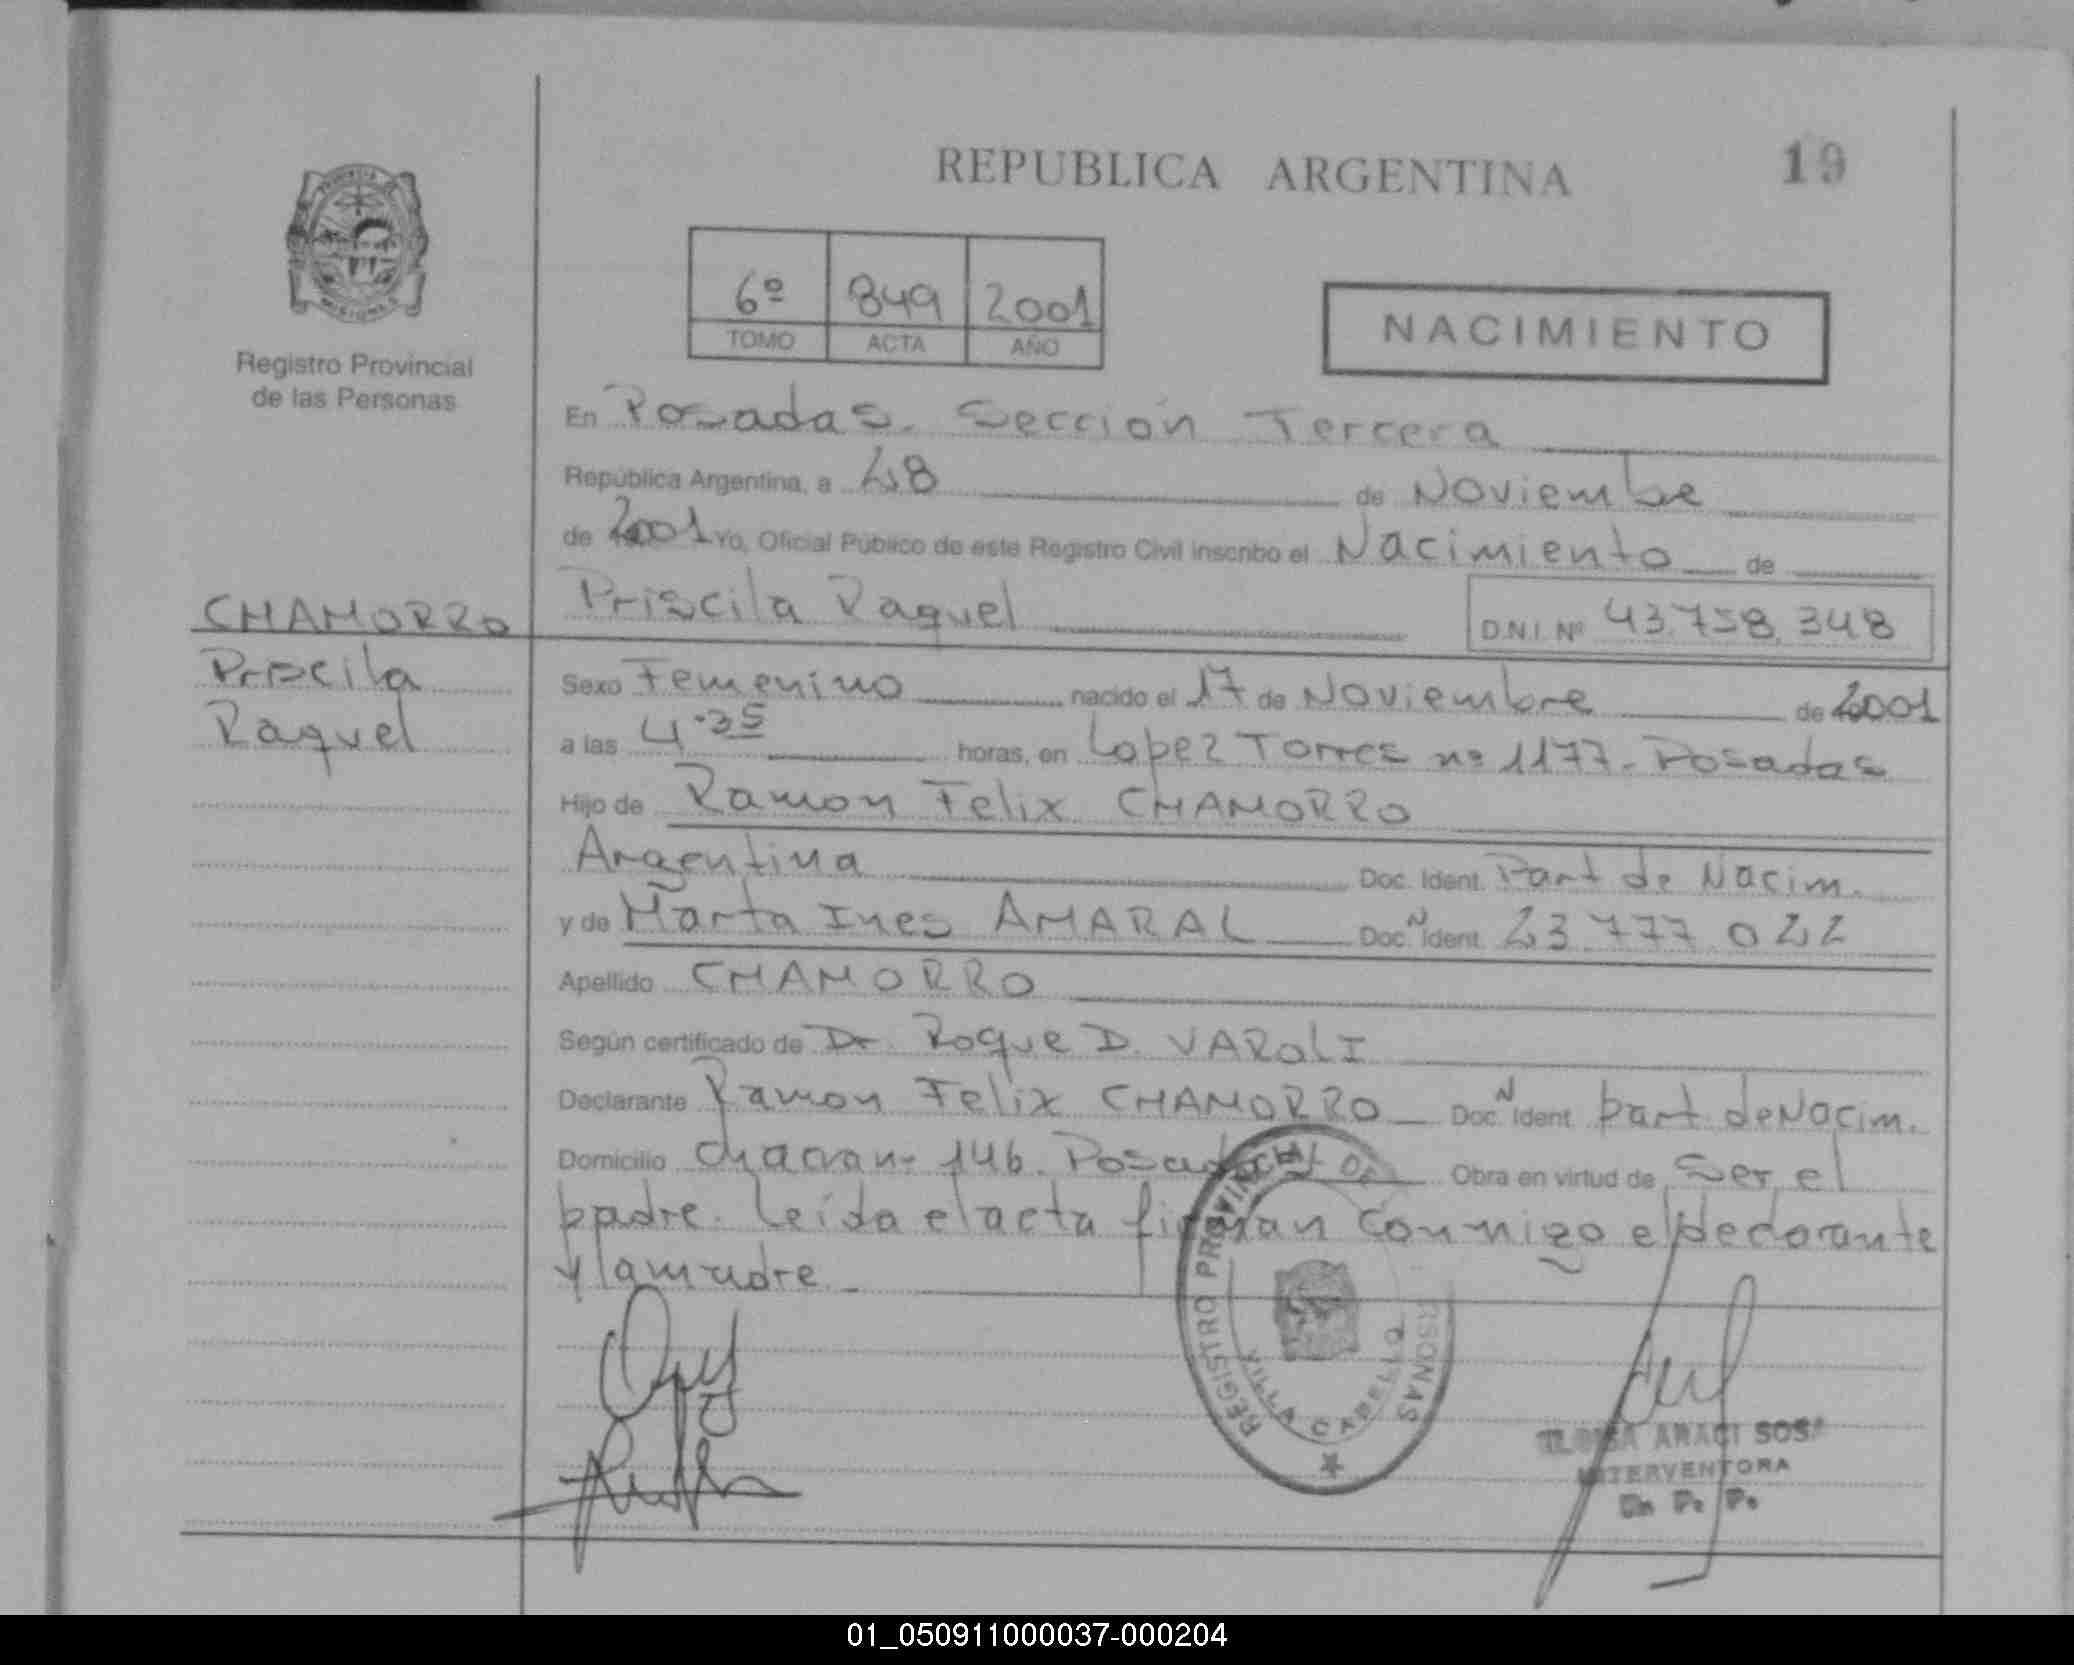 REPUBLICA ARGENTINA
19
PROVINCIA DE
MISIONES
Registro Provincial
de las Personas
6º 849 2001
TOMO ACTA AÑO
NACIMIENTO
En Posadas. Sección Tercera
República Argentina, a 28 de Noviembre
de 2001 Yo, Oficial Público de este Registro Civil inscribo el Nacimiento de
CHAMORRO
Priscila
Raquel
Priscila Raquel D.N.I. Nº 43.758.348
Sexo Femenino nacido el 17 de Noviembre de 2001
a las 4.35 horas, en Lopez Torres nº 1177. Posadas
Hijo de Ramon Felix CHAMORRO
Argentina Doc. Ident. Part de Nacim.
y de Marta Ines AMARAL Doc. N Ident. 23.777.022
Apellido CHAMORRO
Según certificado de Dr. Roque D. VAROLI
Declarante Ramon Felix CHAMORRO Doc. N Ident. part de Nacim.
Domicilio 146. Posadas Obra en virtud de Ser el
padre. Leída el acta firman conmigo el declarante
y la madre.
REGISTRO PROVINCIAL DE PERSONAS
VILLA CABELLO
ARACI SOSA
INTERVENTORA
01_050911000037-000204